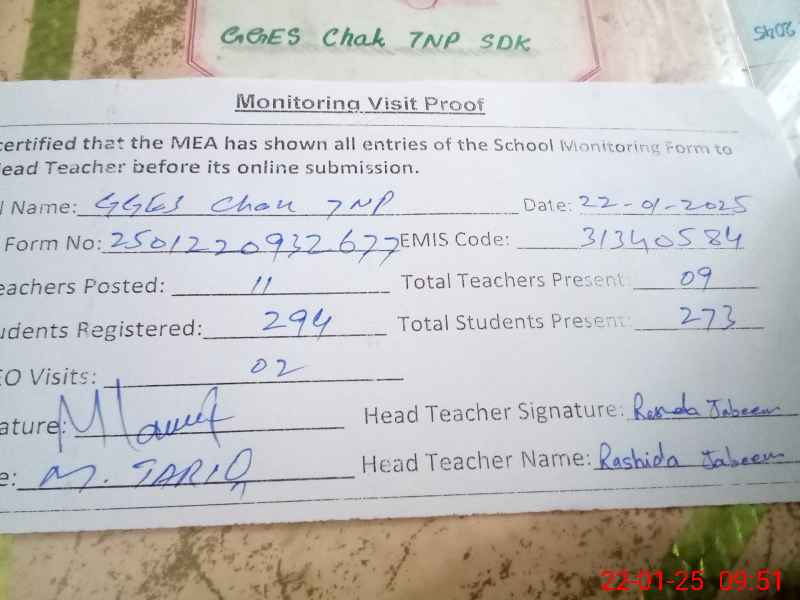 GGES Chak 7NP SDK
Monitoring Visit Proof
certified that the MEA has shown all entries of the School Monitoring Form to
ead Teacher before its online submission.
l Name: GGES Chak 7NP Date: 22-01-2025
Form No: 2501220932677 EMIS Code: 31340584
eachers Posted: 11 Total Teachers Present: 09
udents Registered: 294 Total Students Present: 273
EO Visits: 02
ature: Head Teacher Signature: Jabeen
e: M. TARIQ Head Teacher Name: Rashida Jabeen
22-01-25 09:51